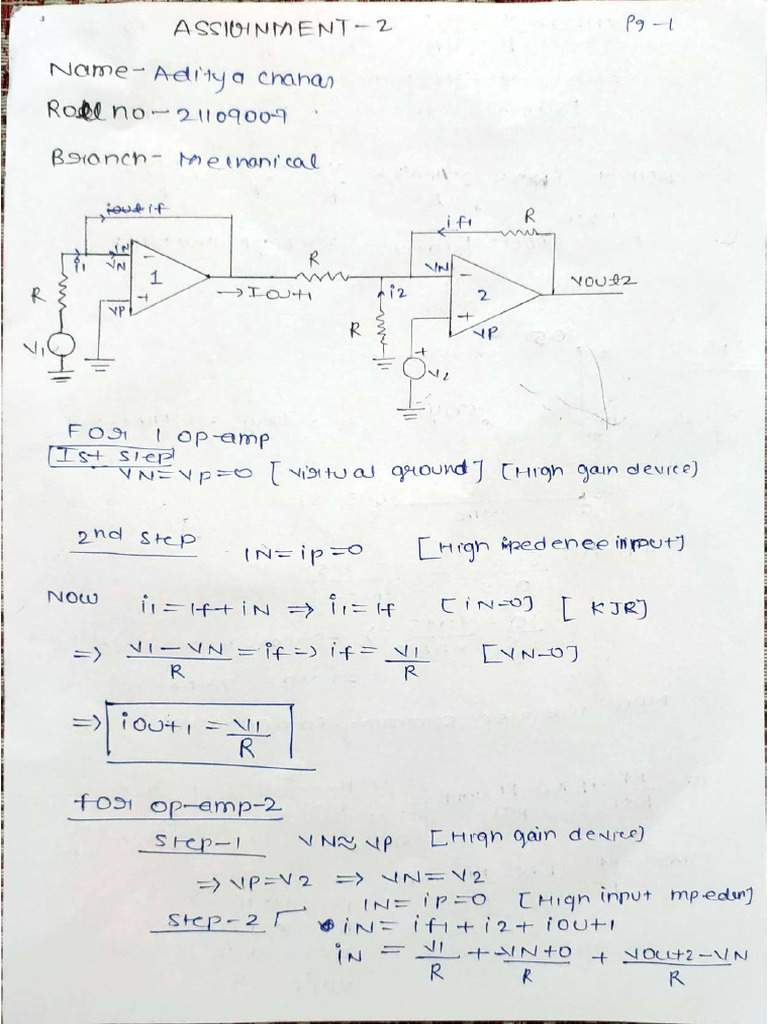 ASSIGNMENT-2
Pg-1
Name- Aditya Chahar
Roll no - 21109009
Branch- Mechanical
iout if
if1
R
i1
iN
VN
1
R
VN
i2
2
Vout2
R
VP
→ Iout1
R
VP
V1
V2
FOR 1 op-amp
1st step
VN=VP=0 [virtual ground] [High gain device]
2nd step
IN=ip=0 [High ipedence input]
NOW i1=If+iN ⇒ i1=If [iN=0] [KJR]
⇒ V1-VN/R = if ⇒ if = V1/R [VN=0]
⇒ iout1 = V1/R
for op-amp-2
Step-1 VN≈VP [High gain device]
⇒ VP=V2 ⇒ VN=V2
IN=ip=0 [High input mpeden]
Step-2 iN= if1+i2+iout1
iN = V1/R + -VN+0/R + Vout2-VN/R